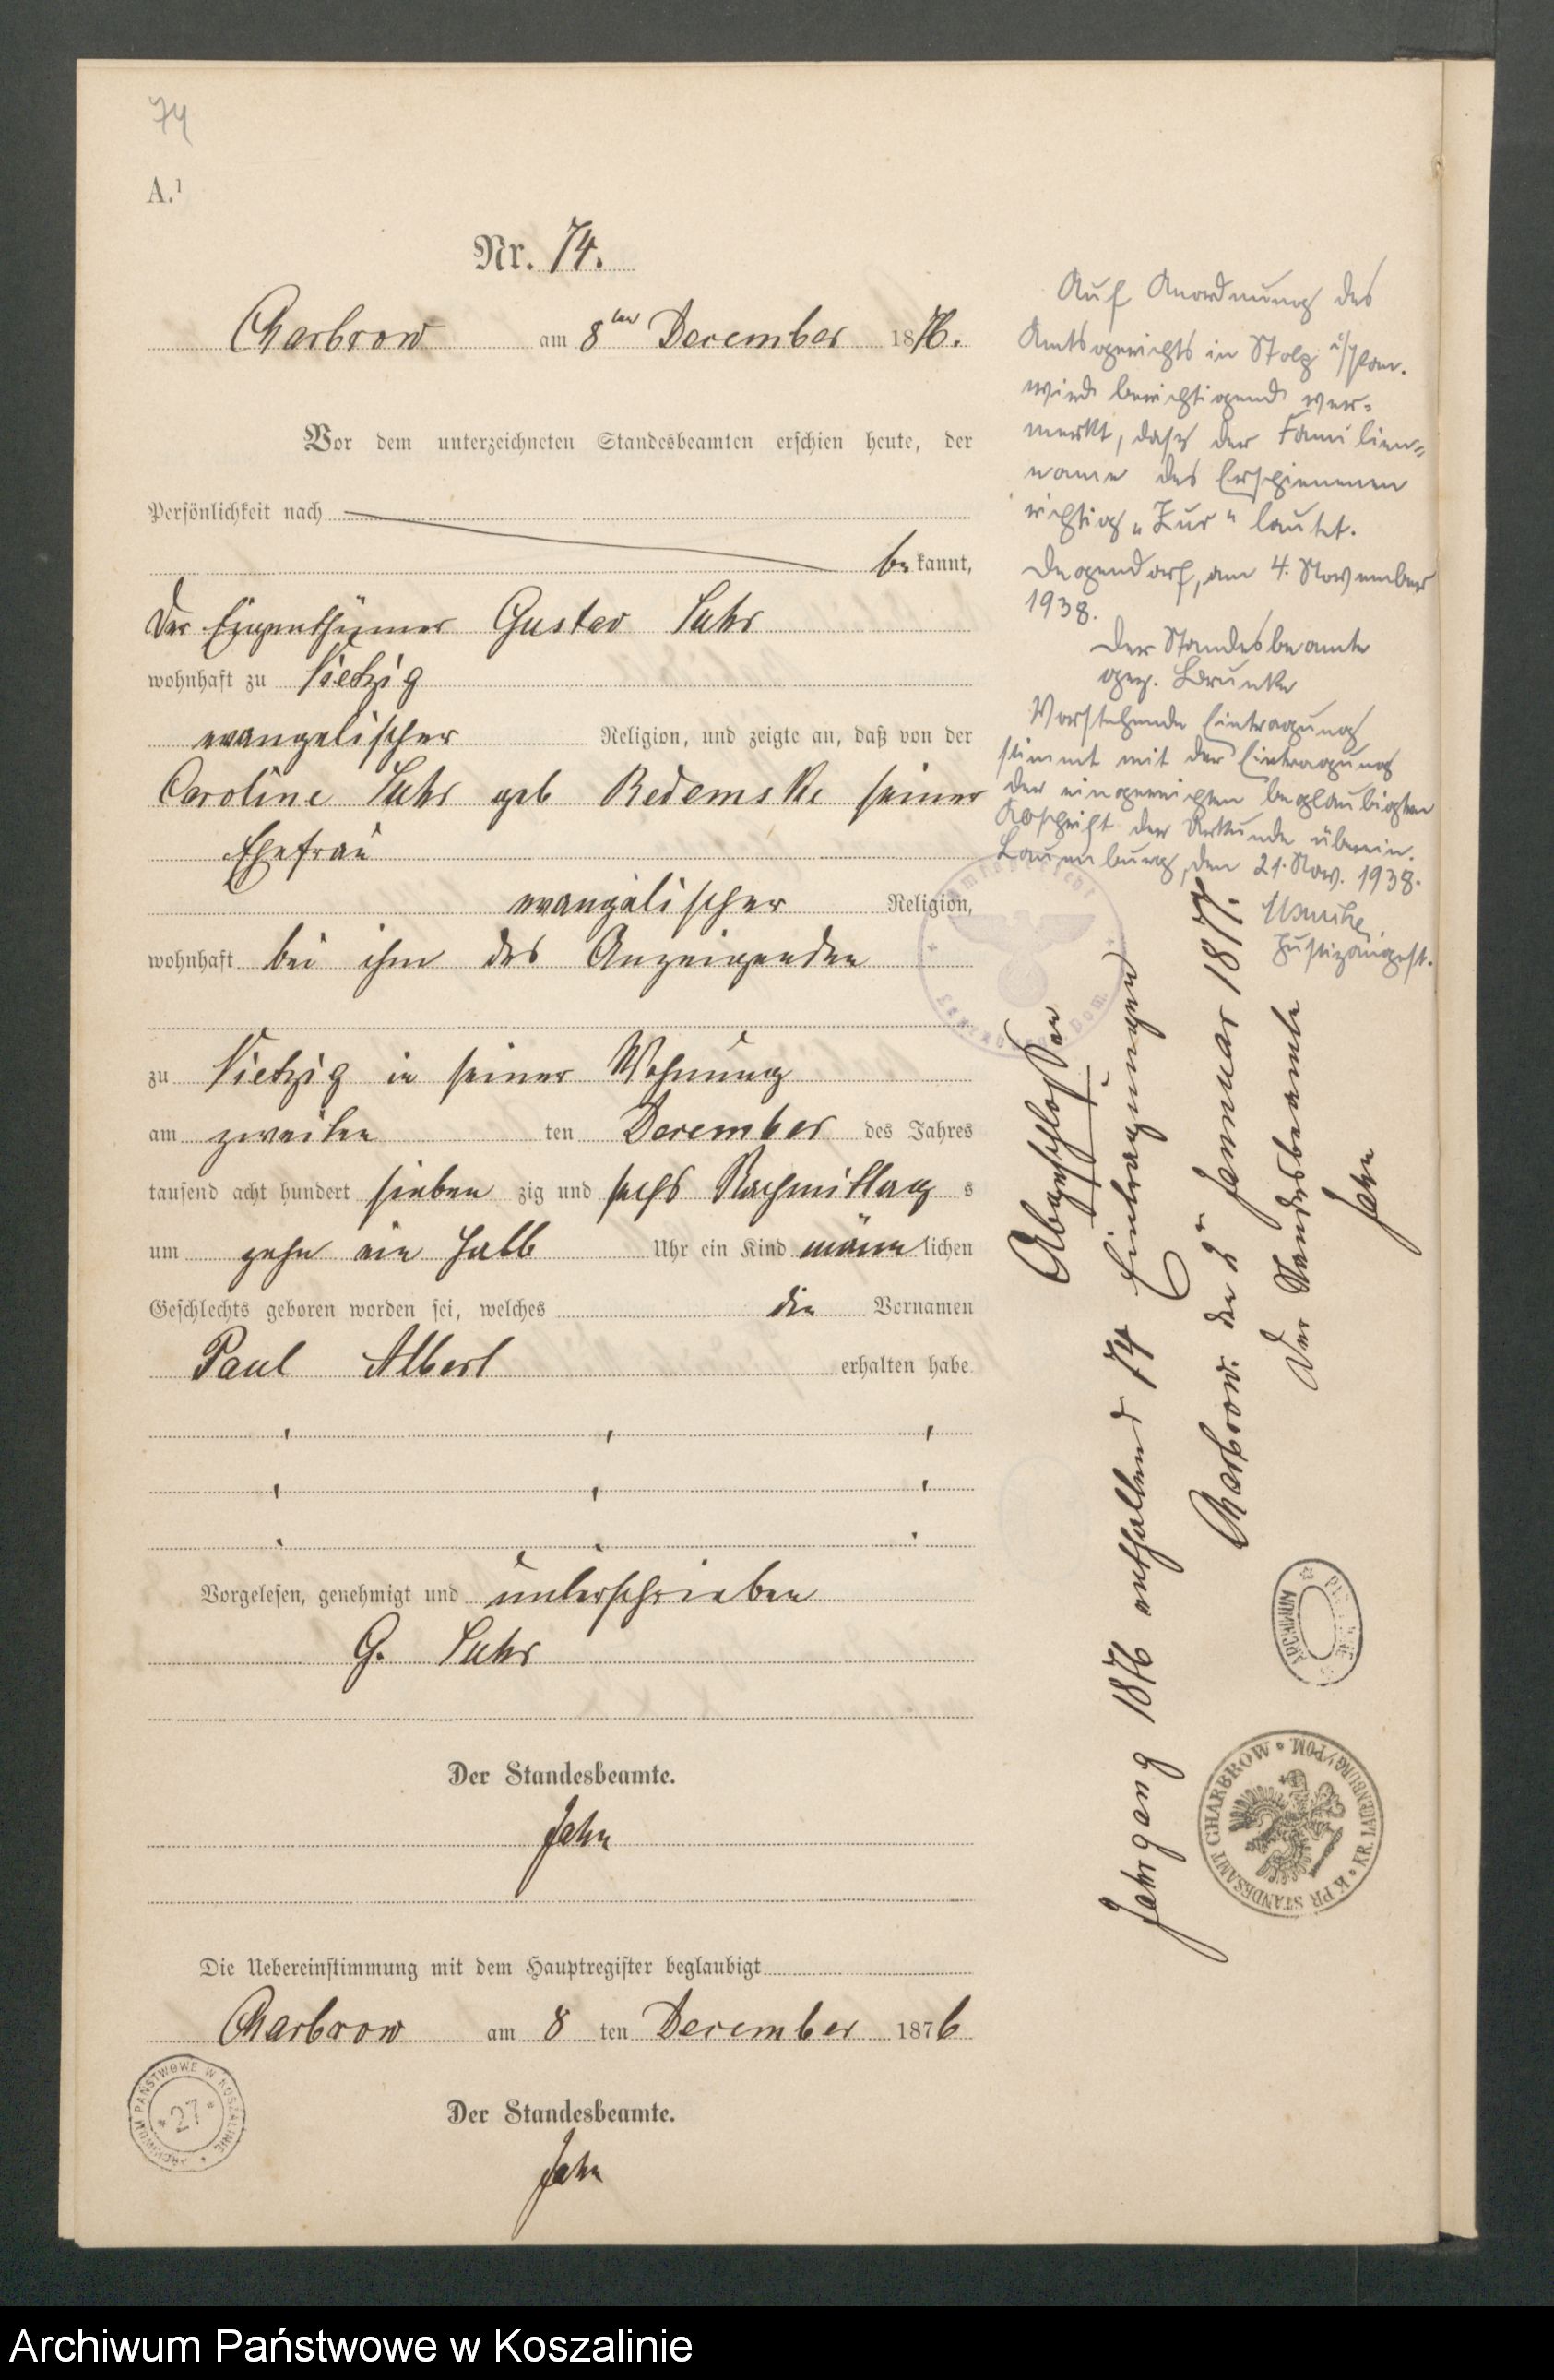 74
A.¹
Nr. 74.
Charbrow am 8ten December 1876.
Vor dem unterzeichneten Standesbeamten erschien heute, der
Persönlichkeit nach
be kannt,
der Eigenthümer Gustav Suhr
wohnhaft zu Vietzig
evangelischer Religion, und zeigte an, daß von der
Caroline Suhr geb Redemske seiner
Ehefrau
evangelischer Religion,
wohnhaft bei ihm des Anzeigenden
zu Vietzig in seiner Wohnung
am zweiten ten December des Jahres
tausend acht hundert sieben zig und sechs Nachmittag s
um zehn ein halb Uhr ein Kind männ lichen
Geschlechts geboren worden sei, welches die Vornamen
Paul Albert erhalten habe
Vorgelesen, genehmigt und unterschrieben
G. Suhr
Der Standesbeamte.
Jahn
Die Uebereinstimmung mit dem Hauptregister beglaubigt
Charbrow am 8 ten December 1876
Der Standesbeamte.
Jahn
Auf Anordnung des
Amtsgerichts in Stolp i/Pom.
wird berichtigend ver=
merkt, dass der Familien=
name des Erschienenen
richtig „Zur" lautet.
Degendorf, am 4. November
1938.
Der Standesbeamte
gez. Brunke
Vorstehende Eintragung
stimmt mit der Eintragung
der eingereichten beglaubigten
Abschrift der Urkunde überein.
Lauenburg, den 21. Nov. 1938.
Justizangest.
Amtsgericht
Pom.
Abgeschlossen
Jahrgang 1876 enthaltend 74 Eintragungen
Charbrow den 2n Januar 1877.
Der Standesbeamte
Jahn
ARCHIWUM
K PR STANDESAMT CHARBROW • KR. LAUENBURG/POM •
ARCHIWUM PAŃSTWOWE W KOSZALINIE
* 27 *
Archiwum Państwowe w Koszalinie